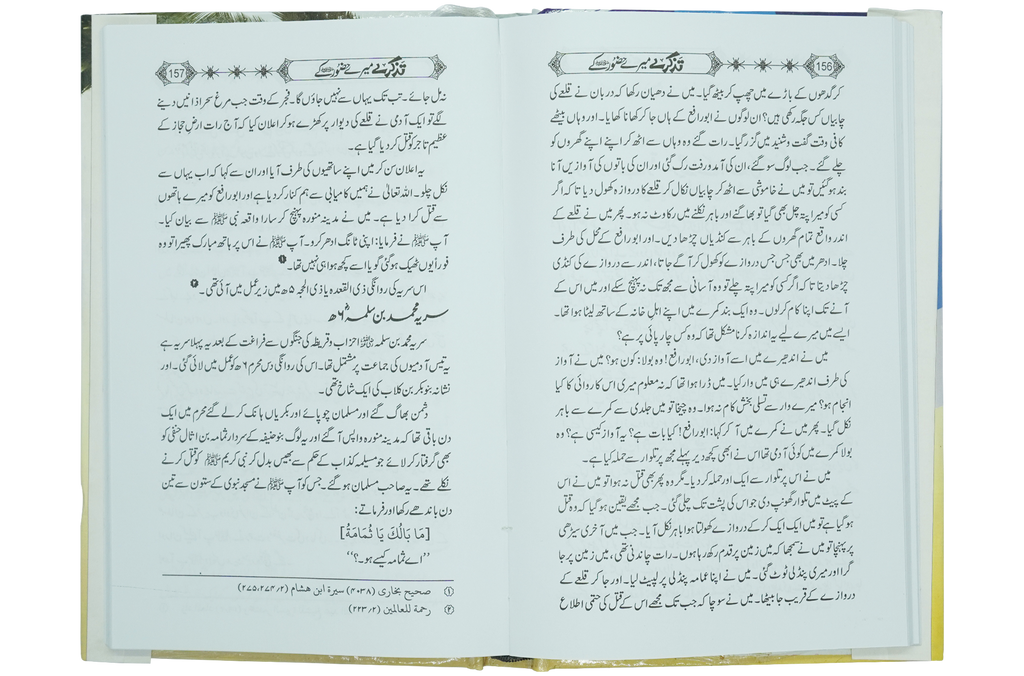 156
تذکرے میرے حضور ﷺ کے
کر گدھوں کے باڑے میں چھپ کر بیٹھ گیا۔ میں نے دھیان رکھا کہ دربان نے قلعے کی
چابیاں کس جگہ رکھی ہیں؟ ان لوگوں نے ابورافع کے ہاں جا کر کھانا کھایا۔ اور وہاں بیٹھے
کافی وقت گفت و شنید میں گزر گیا۔ رات گئے وہ وہاں سے اٹھ کر اپنے اپنے گھروں کو
چلے گئے۔ جب لوگ سو گئے، ان کی آمد و رفت رک گئی اور ان کی باتوں کی آوازیں آنا
بند ہو گئیں تو میں نے خاموشی سے اٹھ کر چابیاں نکال کر قلعے کا دروازہ کھول دیا تا کہ اگر
کسی کو میرا پتہ چل بھی گیا تو بھاگنے اور باہر نکلنے میں رکاوٹ نہ ہو۔ پھر میں نے قلعے کے
اندر واقع تمام گھروں کے باہر سے کنڈیاں چڑھا دیں۔ اور ابورافع کے محل کی طرف
چلا۔ ادھر میں بھی جس جس دروازے کو کھول کر آگے جاتا، اندر سے دروازے کی کنڈی
چڑھا دیتا تا کہ اگر کسی کو میرا پتہ چلے تو وہ آسانی سے مجھ تک نہ پہنچ سکے اور میں اس کے
آنے تک اپنا کام کر لوں۔ وہ ایک بند کمرے میں اپنے اہلِ خانہ کے ساتھ لیٹا ہوا تھا۔
ایسے میں میرے لیے یہ اندازہ کرنا مشکل تھا کہ وہ کس چارپائی پر ہے؟
میں نے اندھیرے میں اسے آواز دی، ابورافع! وہ بولا: کون ہو؟ میں نے آواز
کی طرف اندھیرے ہی میں وار کیا۔ میں ڈرا ہوا تھا کہ نہ معلوم میری اس کاروائی کا کیا
انجام ہو؟ میرے وار سے تسلی بخش کام نہ ہوا۔ وہ چیخا تو میں جلدی سے کمرے سے باہر
نکل گیا۔ پھر میں نے کمرے میں آ کر کہا: ابورافع! کیا بات ہے؟ یہ آواز کیسی ہے؟ وہ
بولا کمرے میں کوئی آدمی تھا اس نے ابھی کچھ دیر پہلے مجھ پر تلوار سے حملہ کیا ہے۔
میں نے اس پر تلوار سے ایک اور حملہ کر دیا۔ مگر وہ پھر بھی قتل نہ ہوا تو میں نے اس
کے پیٹ میں تلوار گھونپ دی جو اس کی پشت تک چلی گئی۔ جب مجھے یقین ہو گیا کہ وہ قتل
ہو گیا ہے تو میں ایک ایک کر کے دروازے کھولتا ہوا باہر نکل آیا۔ جب میں آخری سیڑھی
پر پہنچا تو میں نے سمجھا کہ میں زمین پر قدم رکھ رہا ہوں۔ رات چاندنی تھی، میں زمین پر جا
گرا اور میری پنڈلی ٹوٹ گئی۔ میں نے اپنا عمامہ پنڈلی پر لپیٹ لیا۔ اور جا کر قلعے کے
دروازے کے قریب جا بیٹھا۔ میں نے سوچا کہ جب تک مجھے اس کے قتل کی حتمی اطلاع
تذکرے میرے حضور ﷺ کے
157
نہ مل جائے۔ تب تک یہاں سے نہیں جاؤں گا۔ فجر کے وقت جب مرغ سحر اذانیں دینے
لگے تو ایک آدمی نے قلعے کی دیوار پر کھڑے ہو کر اعلان کیا کہ آج رات ارضِ حجاز کے
عظیم تاجر کو قتل کر دیا گیا ہے۔
یہ اعلان سن کر میں اپنے ساتھیوں کی طرف آیا اور ان سے کہا کہ اب یہاں سے
نکل چلو۔ اللہ تعالیٰ نے ہمیں کامیابی سے ہم کنار کر دیا ہے اور ابورافع کو میرے ہاتھوں
سے قتل کرا دیا ہے۔ میں نے مدینہ منورہ پہنچ کر سارا واقعہ نبی ﷺ سے بیان کیا۔
آپ ﷺ نے فرمایا: اپنی ٹانگ ادھر کرو۔ آپ ﷺ نے اس پر ہاتھ مبارک پھیرا تو وہ
فوراً یوں ٹھیک ہو گئی گویا اسے کچھ ہوا ہی نہیں تھا۔ ❶
اس سریہ کی روانگی ذی القعدہ یا ذی الحجہ ۵ھ میں زیر عمل میں آئی تھی۔ ❷
سریہ محمد بن سلمہ ۶ھ
سریہ محمد بن سلمہ احزاب و قریظہ کی جنگوں سے فراغت کے بعد یہ پہلا سریہ ہے
یہ تیس آدمیوں کی جماعت پر مشتمل تھا۔ اس کی روانگی دس محرم ۶ھ کو عمل میں لائی گئی۔ اور
نشانہ بنو بکر بن کلاب کی ایک شاخ تھی۔
دشمن بھاگ گئے اور مسلمان چوپائے اور بکریاں ہانک کر لے گئے محرم میں ایک
دن باقی تھا کہ مدینہ منورہ واپس آ گئے اور یہ لوگ بنو حنیفہ کے سردار ثمامہ بن اثال حنفی کو
بھی گرفتار کر لائے جو مسیلمہ کذاب کے حکم سے بھیس بدل کر نبی کریم ﷺ کو قتل کرنے
نکلے تھے۔ یہ صاحب مسلمان ہو گئے۔ جس کو آپ ﷺ نے مسجد نبوی کے ستون سے تین
دن باندھے رکھا اور فرماتے:
[مَا بَالُكَ يَا ثُمَامَةُ]
’’اے ثمامہ کیسے ہو۔؟‘‘
① صحیح بخاری (۴۰۳۸) سیرۃ ابن ہشام (۲۷۵،۲۷۴/۲)
② رحمة للعالمین (۲۲۳/۲)